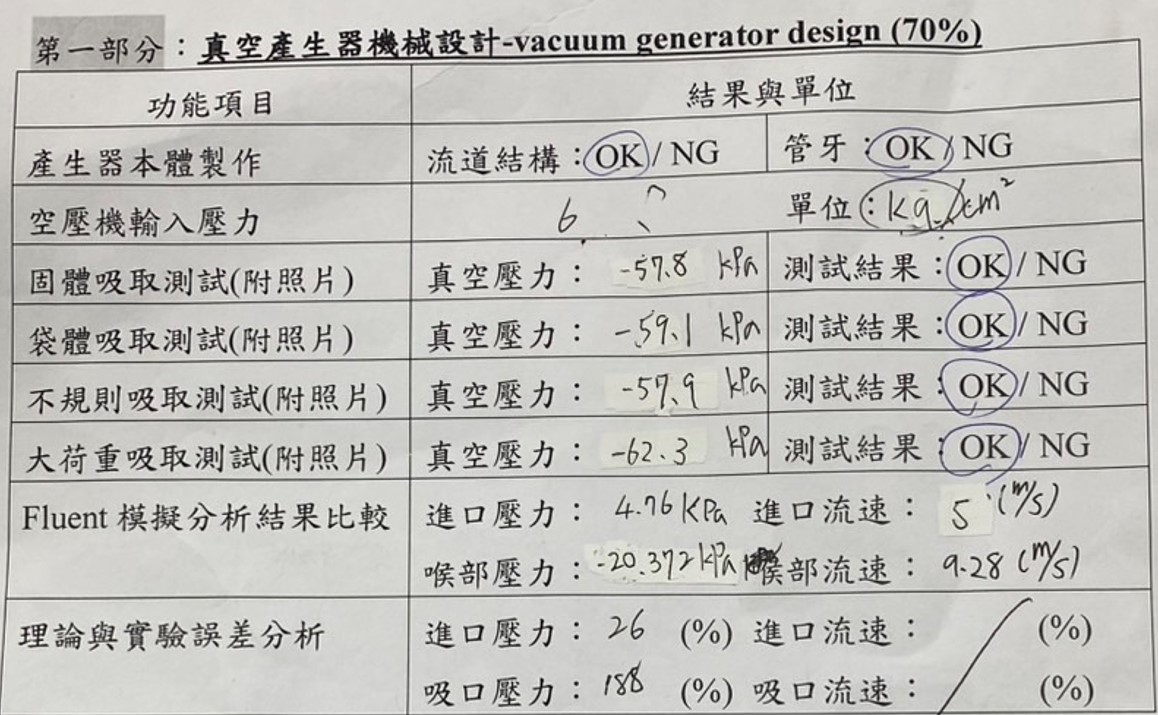 第一部分：真空產生器機械設計-vacuum generator design (70%)
功能項目 結果與單位
產生器本體製作 流道結構：OK / NG 管牙：OK / NG
空壓機輸入壓力 6 單位：kg/cm²
固體吸取測試(附照片) 真空壓力： -57.8 kPa 測試結果：OK / NG
袋體吸取測試(附照片) 真空壓力： -59.1 kPa 測試結果：OK / NG
不規則吸取測試(附照片) 真空壓力： -57.9 kPa 測試結果：OK / NG
大荷重吸取測試(附照片) 真空壓力： -62.3 kPa 測試結果：OK / NG
Fluent 模擬分析結果比較 進口壓力： 4.76 KPa 進口流速： 5 (m/s)
喉部壓力： -20.372 kPa 喉部流速： 9.28 (m/s)
理論與實驗誤差分析 進口壓力： 26 (%) 進口流速： (%)
吸口壓力： 188 (%) 吸口流速： (%)